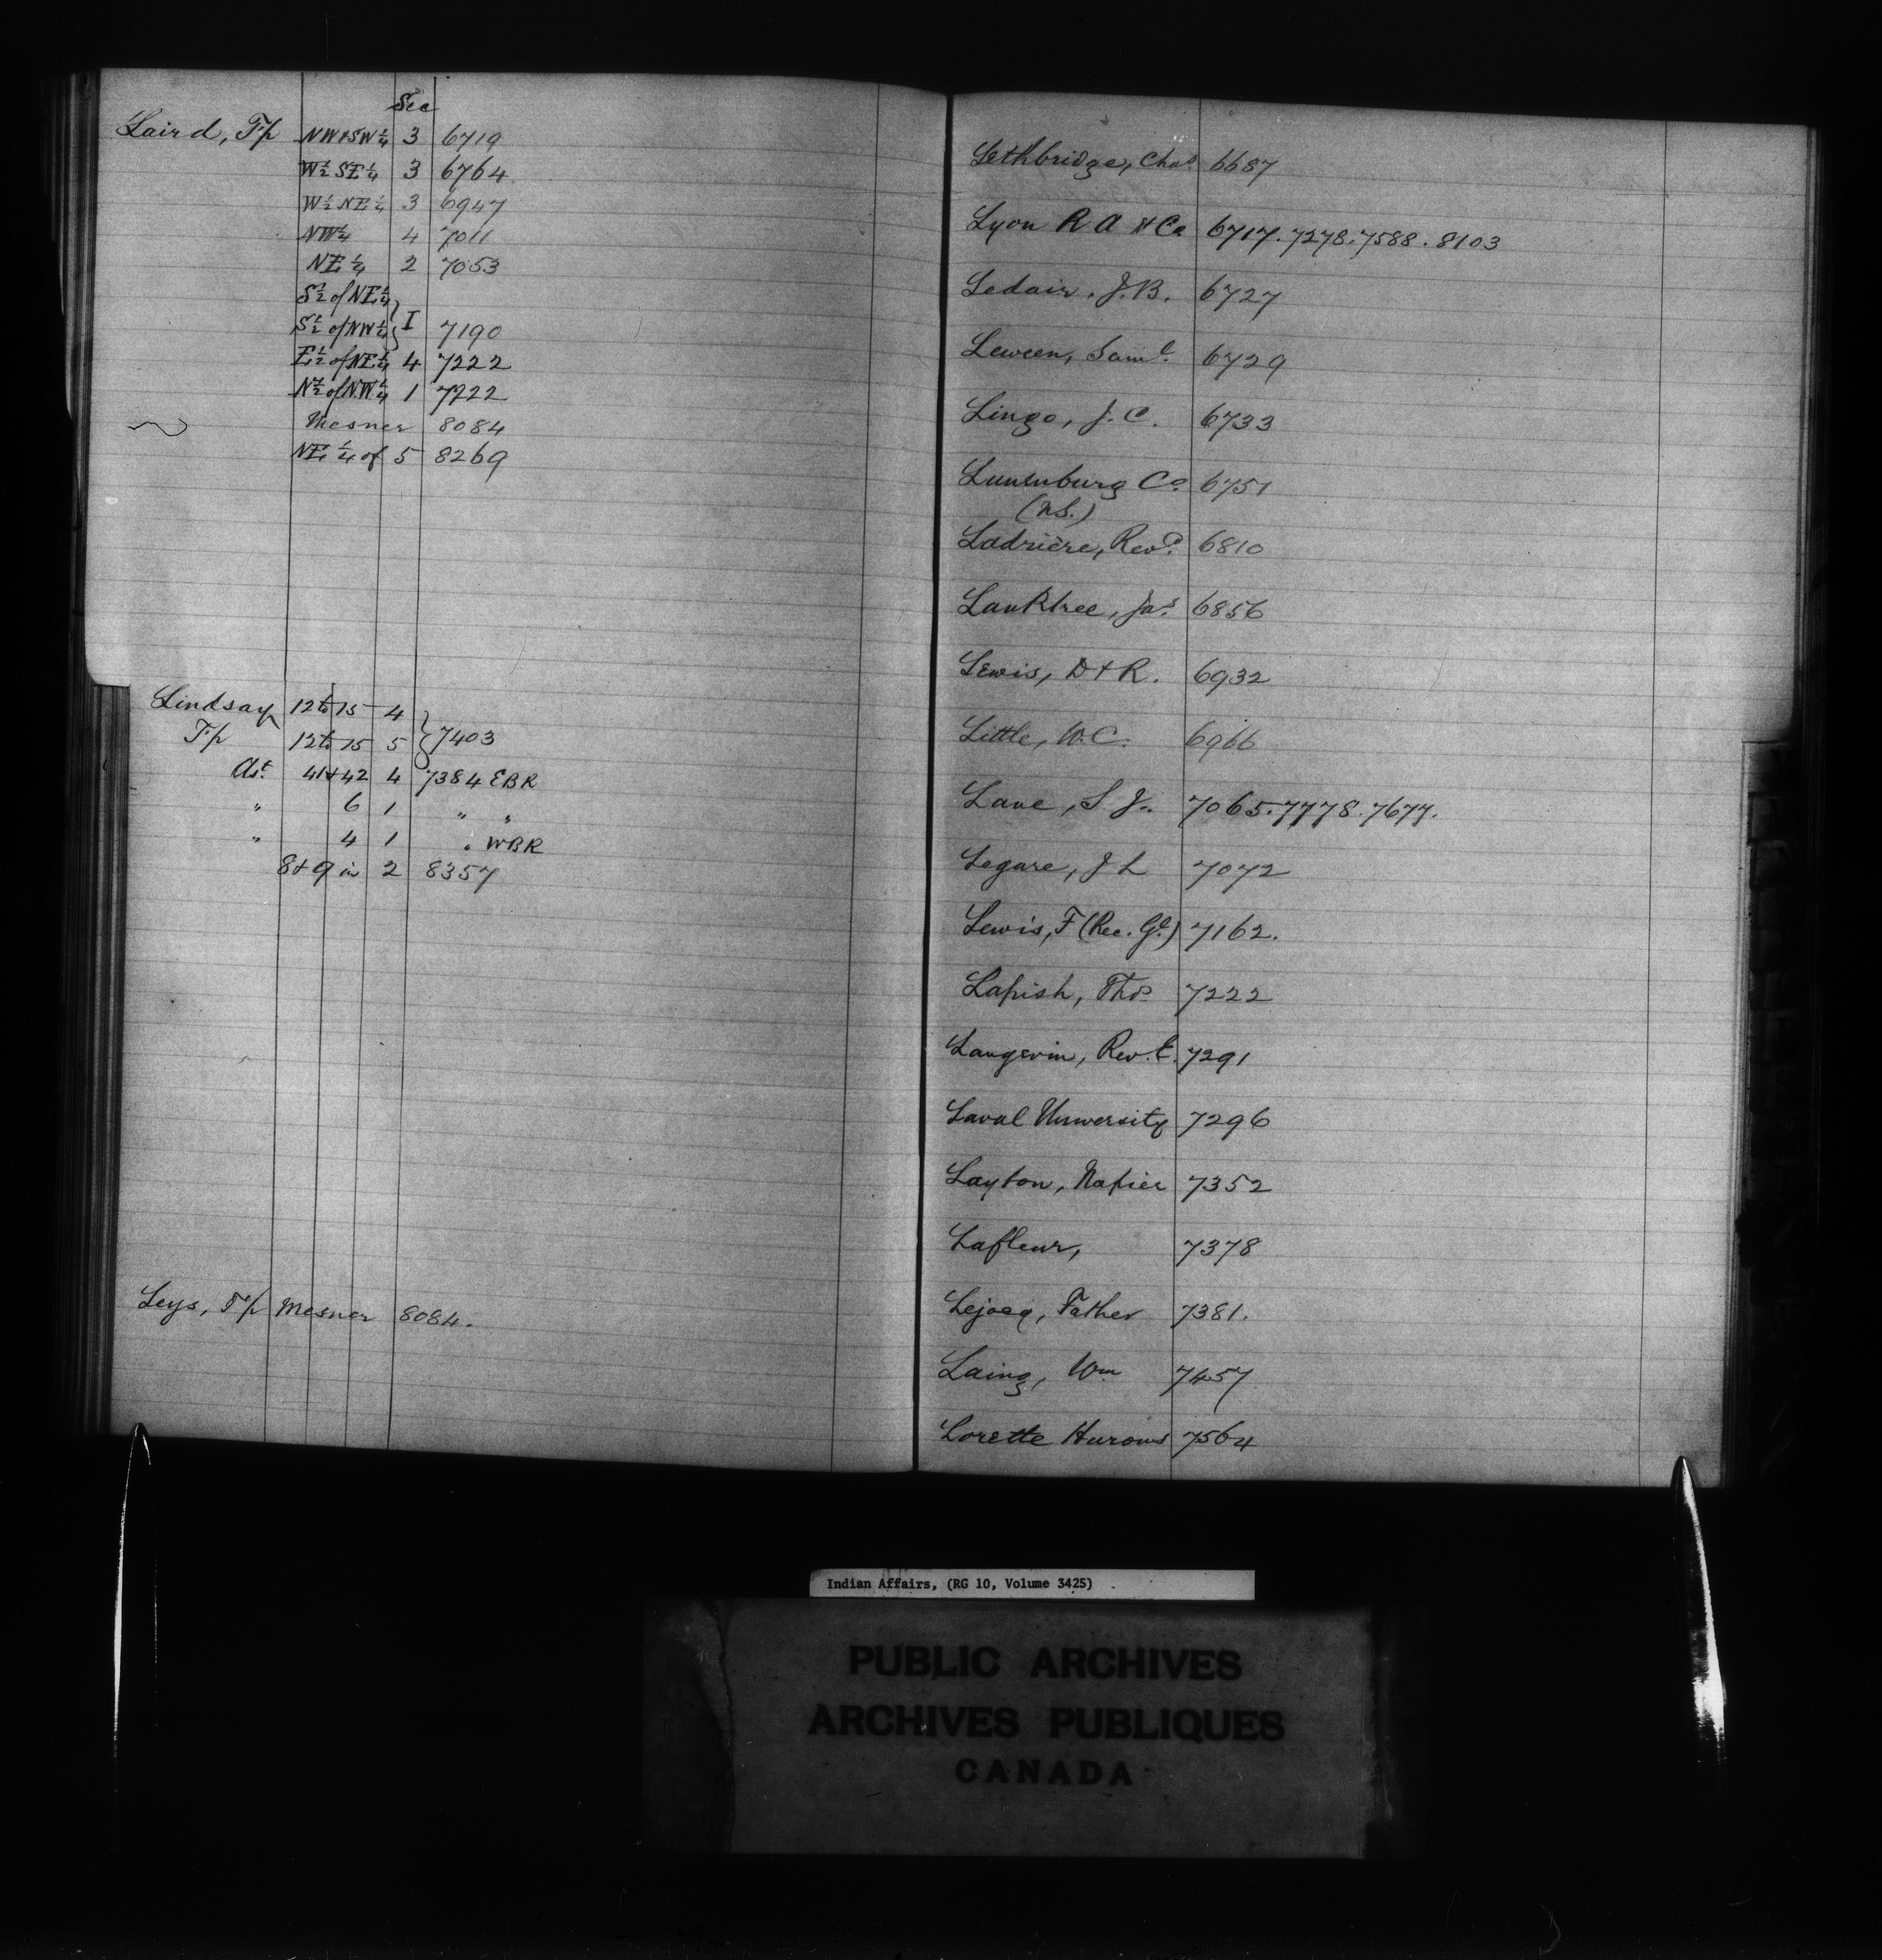 Sec
Laird, Tp NW & SW 1/4 3 6719
W 1/2 SE 1/4 3 6764
W 1/2 NE 1/4 3 6947
NW 1/4 4 7011
NE 1/4 2 7053
S 1/2 of NE 1/4
S 1/2 of NW 1/4 } I 7190
E 1/2 of NE 1/4 4 7222
N 1/2 of NW 1/4 1 7222
Mesner 8084
NE 1/4 of 5 8269
Lindsay 12 to 15 4
Tp 12 to 15 5 } 7403
41 & 42 4 7384 EBR
" 6 1 " "
" 4 1 " WBR
8 & 9 in 2 8357
Leys, Tp Mesner 8084.
Lethbridge, Chas. 6687
Lyon R A & Co 6717. 7278. 7588. 8103
Ledair, J. B. 6727
Leween, Saml. 6729
Lingo, J. C. 6733
Lunenburg Co. 6751
(N.S.)
Ladrière, Revd. 6810
Lanktree, Jas. 6856
Lewis, D & R. 6932
Little, W. C. 6966
Lane, S J. 7065. 7778. 7677.
Legare, J L 7072
Lewis, F (Rec. Gl.) 7162.
Lapish, Thos 7222
Langevin, Rev. E. 7291
Laval University 7296
Layton, Napier 7352
Lafleur, 7378
Lejacq, Father 7381.
Laing, Wm 7457
Lorette Hurons 7564
Indian Affairs, (RG 10, Volume 3425)
PUBLIC ARCHIVES
ARCHIVES PUBLIQUES
CANADA